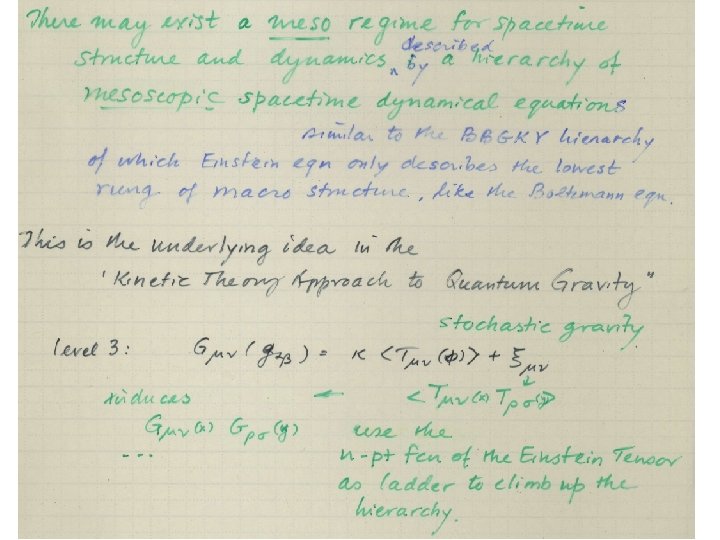 There may exist a meso regime for spacetime
structure and dynamics described by a hierarchy of
mesoscopic spacetime dynamical equations
similar to the BBGKY hierarchy
of which Einstein eqn only describes the lowest
rung of macro structure, like the Boltzmann eqn.
This is the underlying idea in the
'Kinetic Theory Approach to Quantum Gravity"
stochastic gravity
level 3: Gμν(gαβ) = κ <Tμν(φ)> + ξμν
induces ← <Tμν(x) Tρσ(y)>
Gμν(x) Gρσ(y) use the
... n-pt fcn of the Einstein Tensor
as ladder to climb up the
hierarchy.